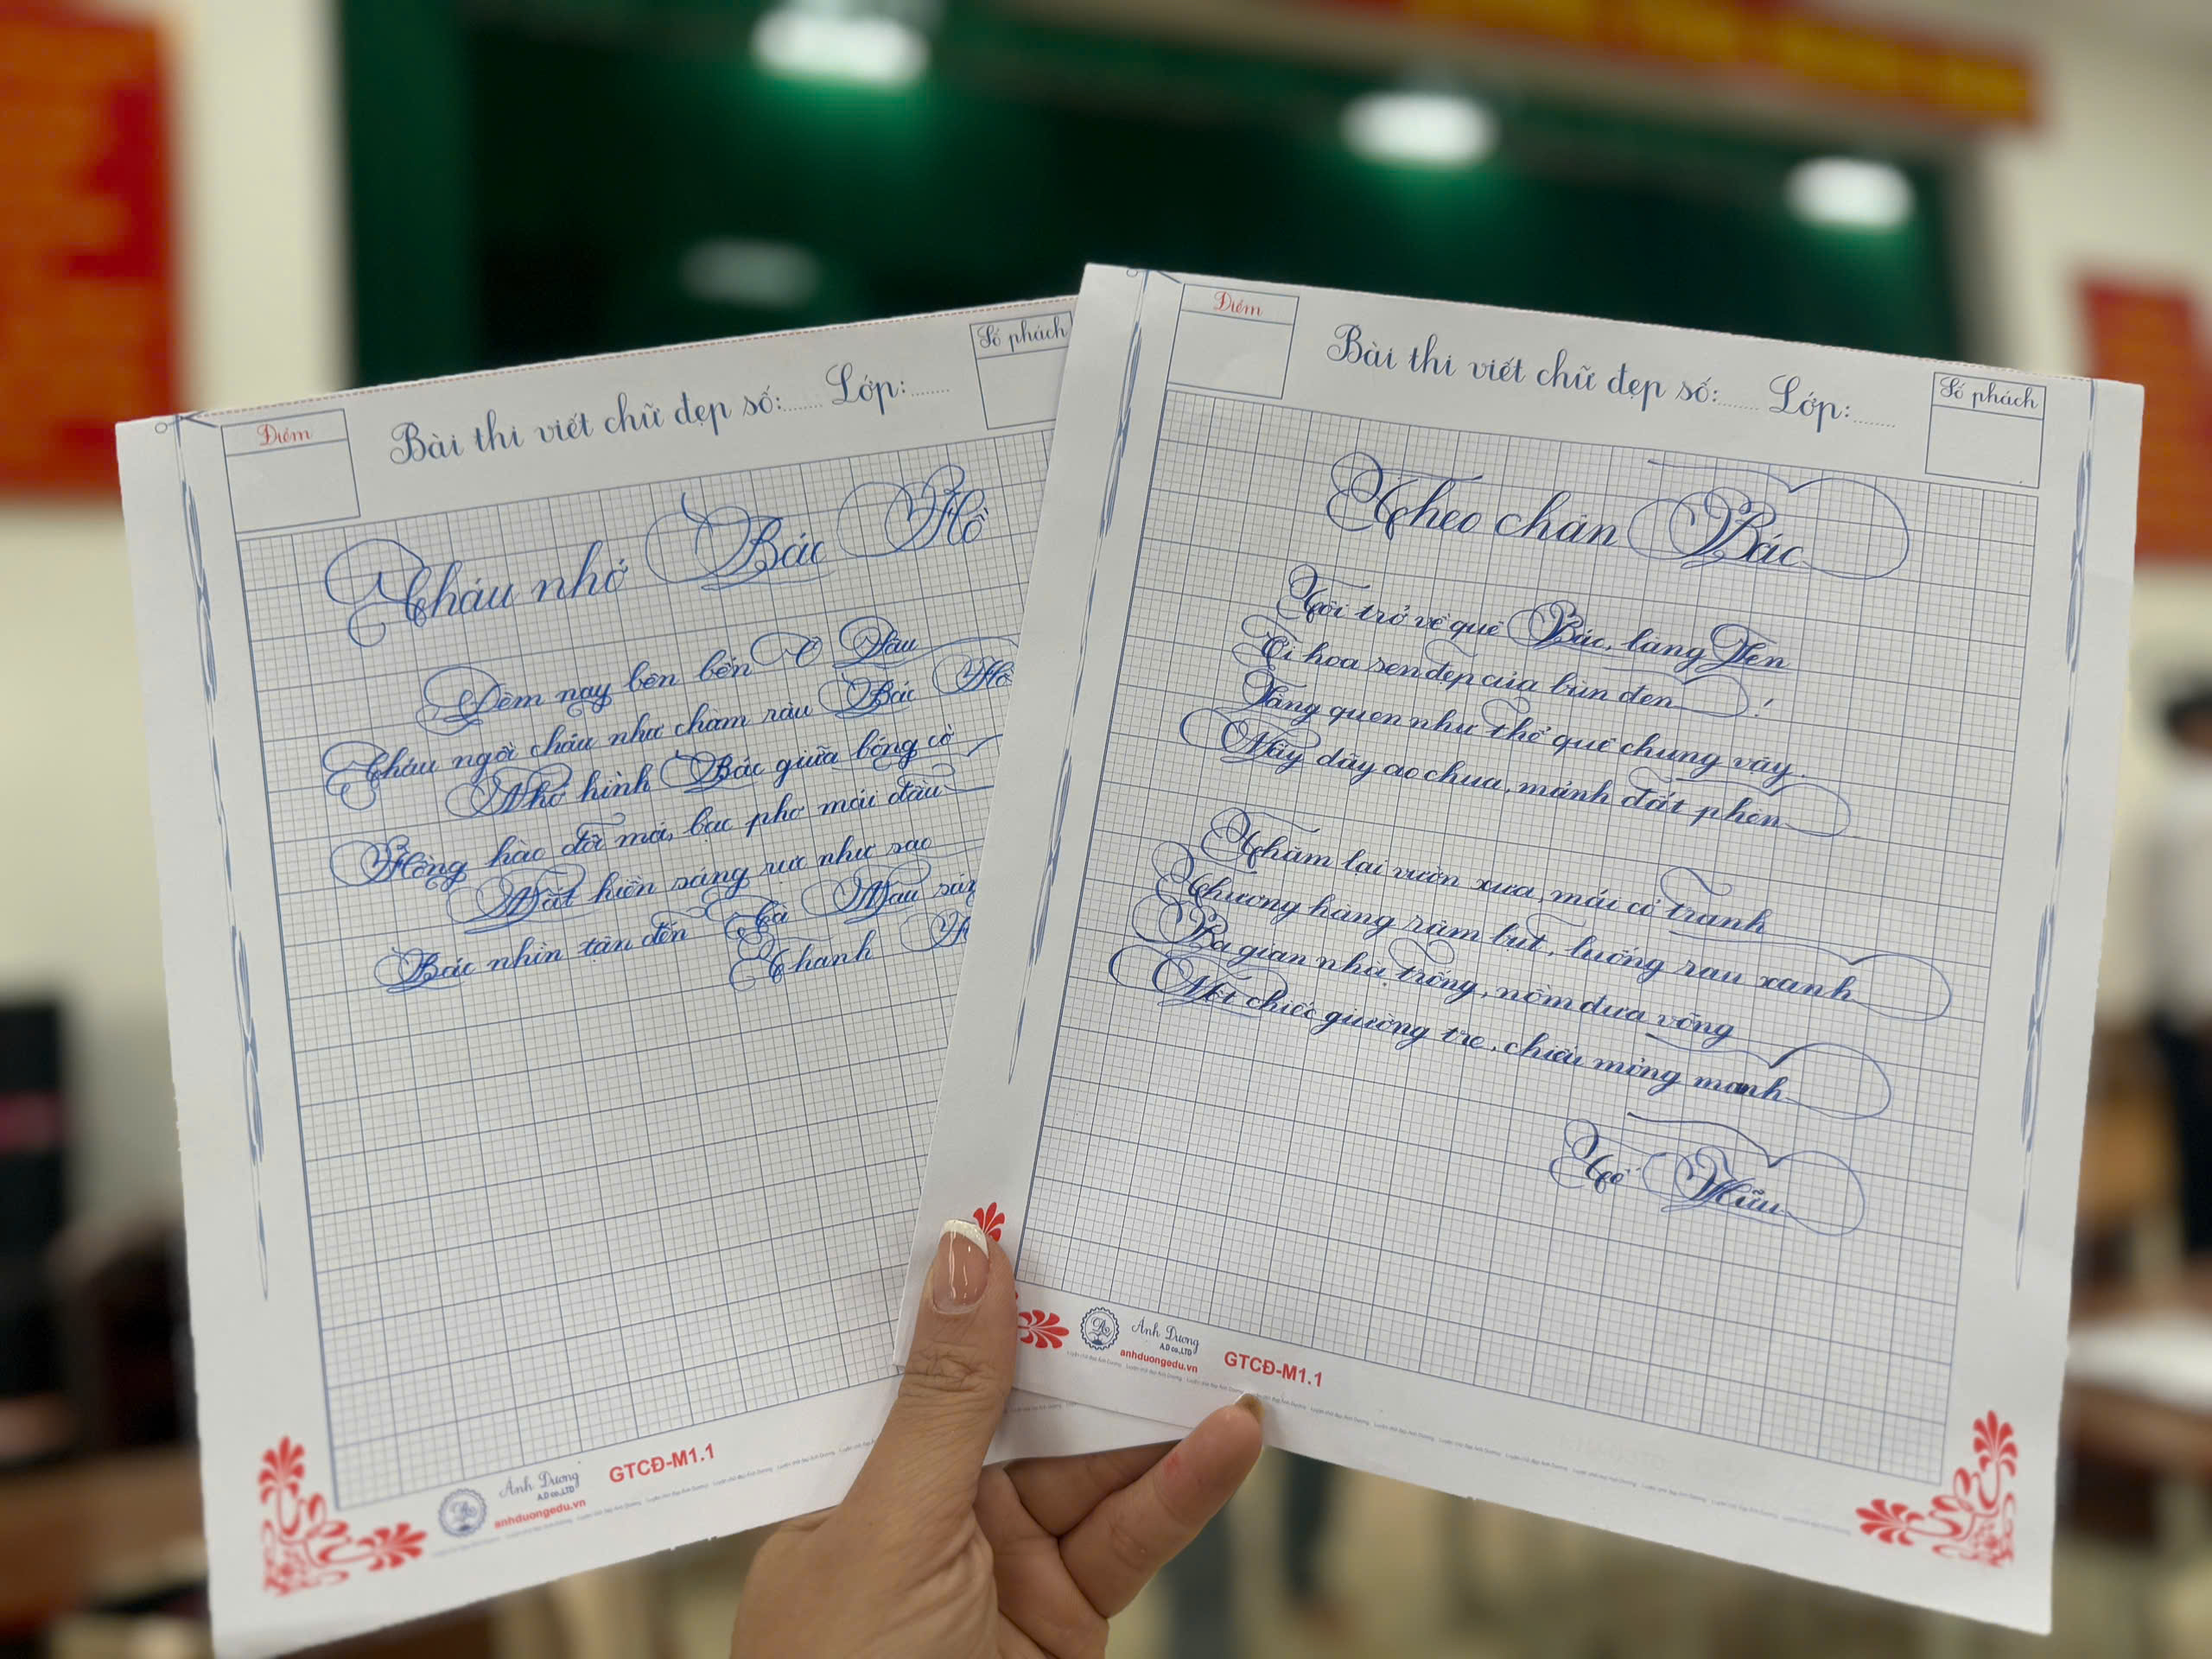 Điểm
Bài thi viết chữ đẹp số:........ Lớp:........
Số phách
Cháu nhớ Bác Hồ
Đêm nay bên bến Ô Lâu
Cháu ngồi cháu nhớ chòm râu Bác Hồ
Nhớ hình Bác giữa bóng cờ
Hồng hào đôi má, bạc phơ mái đầu
Mắt hiền sáng rực như sao
Bác nhìn tận đến Cà Mau sáng
Thanh
Ánh Dương
A.D co.,LTD
anhduongedu.vn
GTCĐ-M1.1
Điểm
Bài thi viết chữ đẹp số:........ Lớp:........
Số phách
Theo chân Bác
Tôi trở về quê Bác, làng Sen
Ôi hoa sen đẹp của bùn đen!
Làng quen như thể quê chung vậy.
Mấy dãy ao chua, mảnh đất phèn
Thăm lại vườn xưa, mái cỏ tranh
Thương hàng râm bụt, luống rau xanh
Ba gian nhà trống, nồm đưa võng
Một chiếc giường tre, chiếu mỏng manh
Tố Hữu
Ánh Dương
A.D co.,LTD
anhduongedu.vn
GTCĐ-M1.1